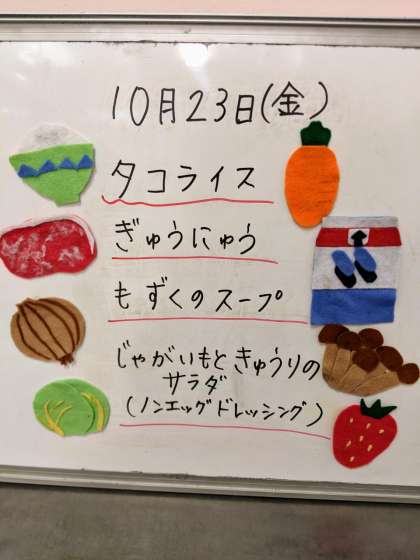 10月23日(金)
タコライス
ぎゅうにゅう
もずくのスープ
じゃがいもときゅうりの
サラダ
(ノンエッグドレッシング)